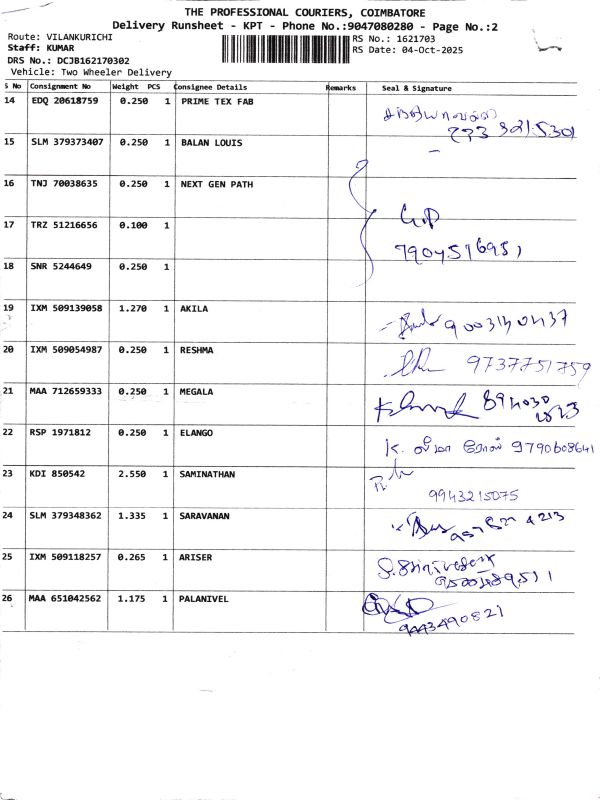 THE PROFESSIONAL COURIERS, COIMBATORE
Delivery Runsheet - KPT - Phone No.:9047080280 - Page No.:2
Route: VILANKURICHI RS No.: 1621703
Staff: KUMAR RS Date: 04-Oct-2025
DRS No.: DCJB162170302
Vehicle: Two Wheeler Delivery
S No Consignment No Weight PCS Consignee Details Remarks Seal & Signature
14 EDQ 20618759 0.250 1 PRIME TEX FAB
15 SLM 379373407 0.250 1 BALAN LOUIS
16 TNJ 70038635 0.250 1 NEXT GEN PATH
17 TRZ 51216656 0.100 1
7904576951
18 SNR 5244649 0.250 1
19 IXM 509139058 1.270 1 AKILA
20 IXM 509054987 0.250 1 RESHMA 9737751759
21 MAA 712659333 0.250 1 MEGALA
22 RSP 1971812 0.250 1 ELANGO 9790608641
23 KDI 850542 2.550 1 SAMINATHAN
9943215075
24 SLM 379348362 1.335 1 SARAVANAN
25 IXM 509118257 0.265 1 ARISER
26 MAA 651042562 1.175 1 PALANIVEL
9443490821